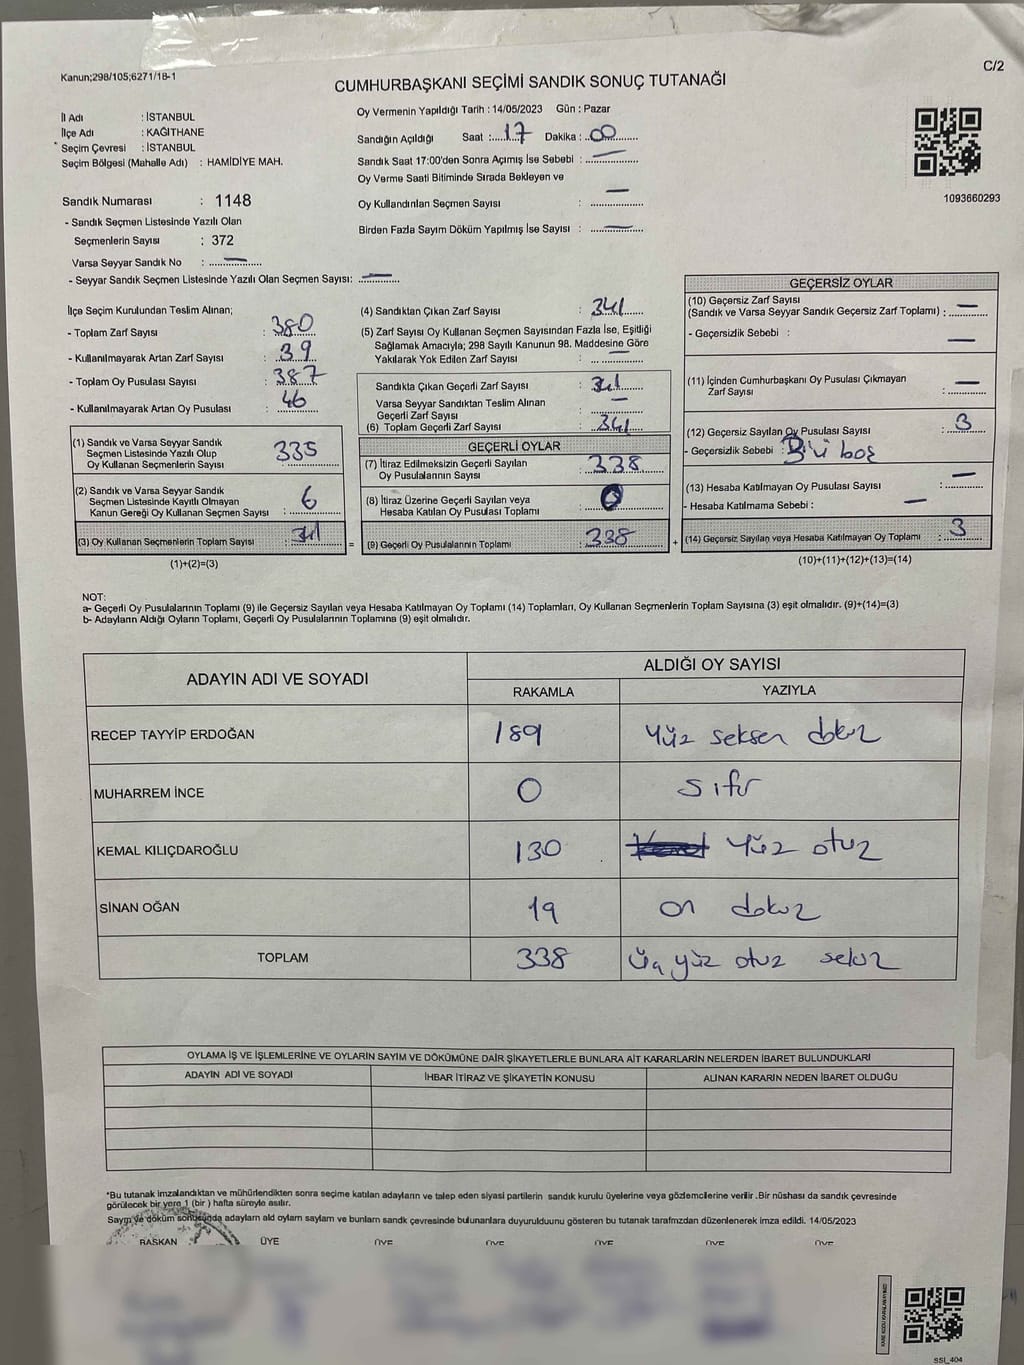 Kanun;298/105;6271/18-1
C/2
CUMHURBAŞKANI SEÇİMİ SANDIK SONUÇ TUTANAĞI
İl Adı : İSTANBUL
İlçe Adı : KAĞITHANE
Seçim Çevresi : İSTANBUL
Seçim Bölgesi (Mahalle Adı) : HAMİDİYE MAH.
Oy Vermenin Yapıldığı Tarih : 14/05/2023 Gün : Pazar
Sandığın Açıldığı Saat : 17 Dakika : 00
Sandık Saat 17:00'den Sonra Açımış İse Sebebi : —
Oy Verme Saati Bitiminde Sırada Bekleyen ve
Oy Kullandırılan Seçmen Sayısı : —
Birden Fazla Sayım Döküm Yapılmış İse Sayısı : —
1093660293
Sandık Numarası : 1148
- Sandık Seçmen Listesinde Yazılı Olan
Seçmenlerin Sayısı : 372
Varsa Seyyar Sandık No : —
- Seyyar Sandık Seçmen Listesinde Yazılı Olan Seçmen Sayısı: —
İlçe Seçim Kurulundan Teslim Alınan;
- Toplam Zarf Sayısı : 380
- Kullanılmayarak Artan Zarf Sayısı : 39
- Toplam Oy Pusulası Sayısı : 387
- Kullanılmayarak Artan Oy Pusulası : 46
(1) Sandık ve Varsa Seyyar Sandık
Seçmen Listesinde Yazılı Olup
Oy Kullanan Seçmenlerin Sayısı : 335
(2) Sandık ve Varsa Seyyar Sandık
Seçmen Listesinde Kayıtlı Olmayan
Kanun Gereği Oy Kullanan Seçmen Sayısı : 6
(3) Oy Kullanan Seçmenlerin Toplam Sayısı : 341 =
(1)+(2)=(3)
(4) Sandıktan Çıkan Zarf Sayısı : 341
(5) Zarf Sayısı Oy Kullanan Seçmen Sayısından Fazla İse, Eşitliği
Sağlamak Amacıyla; 298 Sayılı Kanunun 98. Maddesine Göre
Yakılarak Yok Edilen Zarf Sayısı : —
Sandıkta Çıkan Geçerli Zarf Sayısı : 341
Varsa Seyyar Sandıktan Teslim Alınan
Geçerli Zarf Sayısı : —
(6) Toplam Geçerli Zarf Sayısı : 341
GEÇERLİ OYLAR
(7) İtiraz Edilmeksizin Geçerli Sayılan
Oy Pusulalarının Sayısı : 338
(8) İtiraz Üzerine Geçerli Sayılan veya
Hesaba Katılan Oy Pusulası Toplamı : 0
(9) Geçerli Oy Pusulalarının Toplamı : 338 +
GEÇERSİZ OYLAR
(10) Geçersiz Zarf Sayısı
(Sandık ve Varsa Seyyar Sandık Geçersiz Zarf Toplamı) : —
- Geçersizlik Sebebi : —
(11) İçinden Cumhurbaşkanı Oy Pusulası Çıkmayan
Zarf Sayısı : —
(12) Geçersiz Sayılan Oy Pusulası Sayısı : 3
- Geçersizlik Sebebi : Biri boş
(13) Hesaba Katılmayan Oy Pusulası Sayısı : —
- Hesaba Katılmama Sebebi : —
(14) Geçersiz Sayılan veya Hesaba Katılmayan Oy Toplamı : 3
(10)+(11)+(12)+(13)=(14)
NOT:
a- Geçerli Oy Pusulalarının Toplamı (9) ile Geçersiz Sayılan veya Hesaba Katılmayan Oy Toplamı (14) Toplamları, Oy Kullanan Seçmenlerin Toplam Sayısına (3) eşit olmalıdır. (9)+(14)=(3)
b- Adayların Aldığı Oyların Toplamı, Geçerli Oy Pusulalarının Toplamına (9) eşit olmalıdır.
ADAYIN ADI VE SOYADI
ALDIĞI OY SAYISI
RAKAMLA YAZIYLA
RECEP TAYYİP ERDOĞAN 189 Yüz seksen dokuz
MUHARREM İNCE 0 Sıfır
KEMAL KILIÇDAROĞLU 130 Yüz otuz
SİNAN OĞAN 19 on dokuz
TOPLAM 338 Üç yüz otuz sekiz
OYLAMA İŞ VE İŞLEMLERİNE VE OYLARIN SAYIM VE DÖKÜMÜNE DAİR ŞİKAYETLERLE BUNLARA AİT KARARLARIN NELERDEN İBARET BULUNDUKLARI
ADAYIN ADI VE SOYADI İHBAR İTİRAZ VE ŞİKAYETİN KONUSU ALINAN KARARIN NEDEN İBARET OLDUĞU
*Bu tutanak imzalandıktan ve mühürlendikten sonra seçime katılan adayların ve talep eden siyasi partilerin sandık kurulu üyelerine veya gözlemcilerine verilir .Bir nüshası da sandık çevresinde
görülecek bir yere 1 (bir ) hafta süreyle asılır.
Sayım ve döküm sonucunda adayların ald oyların sayların ve bunların sandk çevresinde bulunanlara duyurulduunu gösteren bu tutanak tarafımzdan düzenlenerek imza edildi. 14/05/2023
BAŞKAN ÜYE ÜYE ÜYE ÜYE ÜYE ÜYE
SSI_404